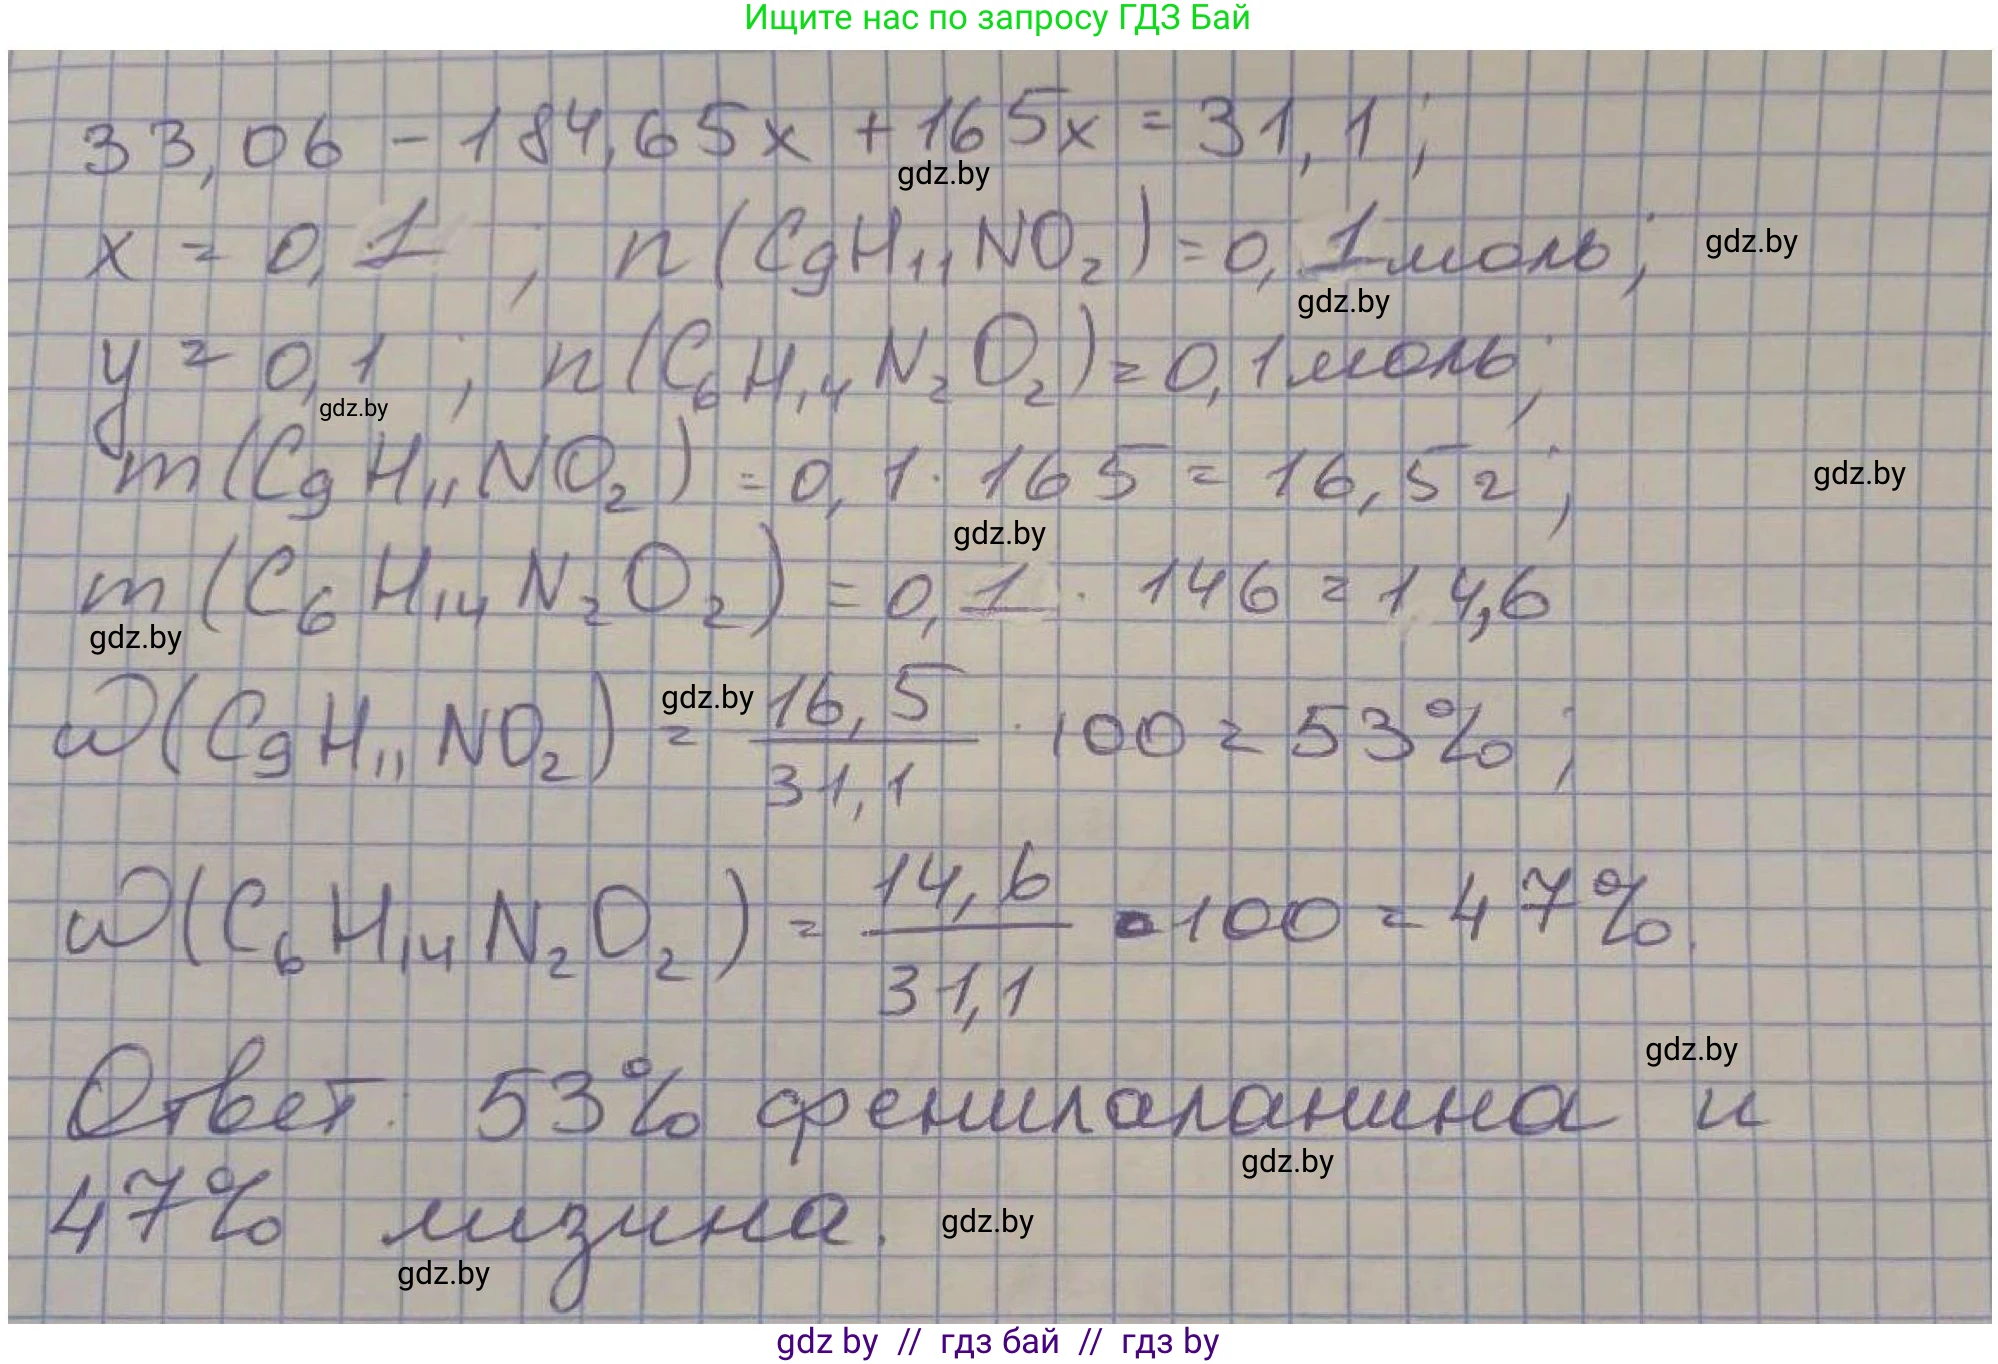 Ищите нас по запросу ГДЗ Бай
33,06 - 184,65x + 165x = 31,1;
gdz.by
x = 0,1 ; n(C₉H₁₁NO₂) = 0,1 моль;
gdz.by
gdz.by
y = 0,1 ; n(C₆H₁₄N₂O₂) = 0,1 моль;
gdz.by
m(C₉H₁₁NO₂) = 0,1 · 165 = 16,5 г;
gdz.by
gdz.by
m(C₆H₁₄N₂O₂) = 0,1 · 146 = 14,6
gdz.by
ω(C₉H₁₁NO₂) = 16,5/31,1 · 100 = 53%;
gdz.by
ω(C₆H₁₄N₂O₂) = 14,6/31,1 · 100 = 47%.
gdz.by
Ответ: 53% фенилаланина и
gdz.by
47% лизина.
gdz.by
gdz.by
gdz by // гдз бай // гдз by